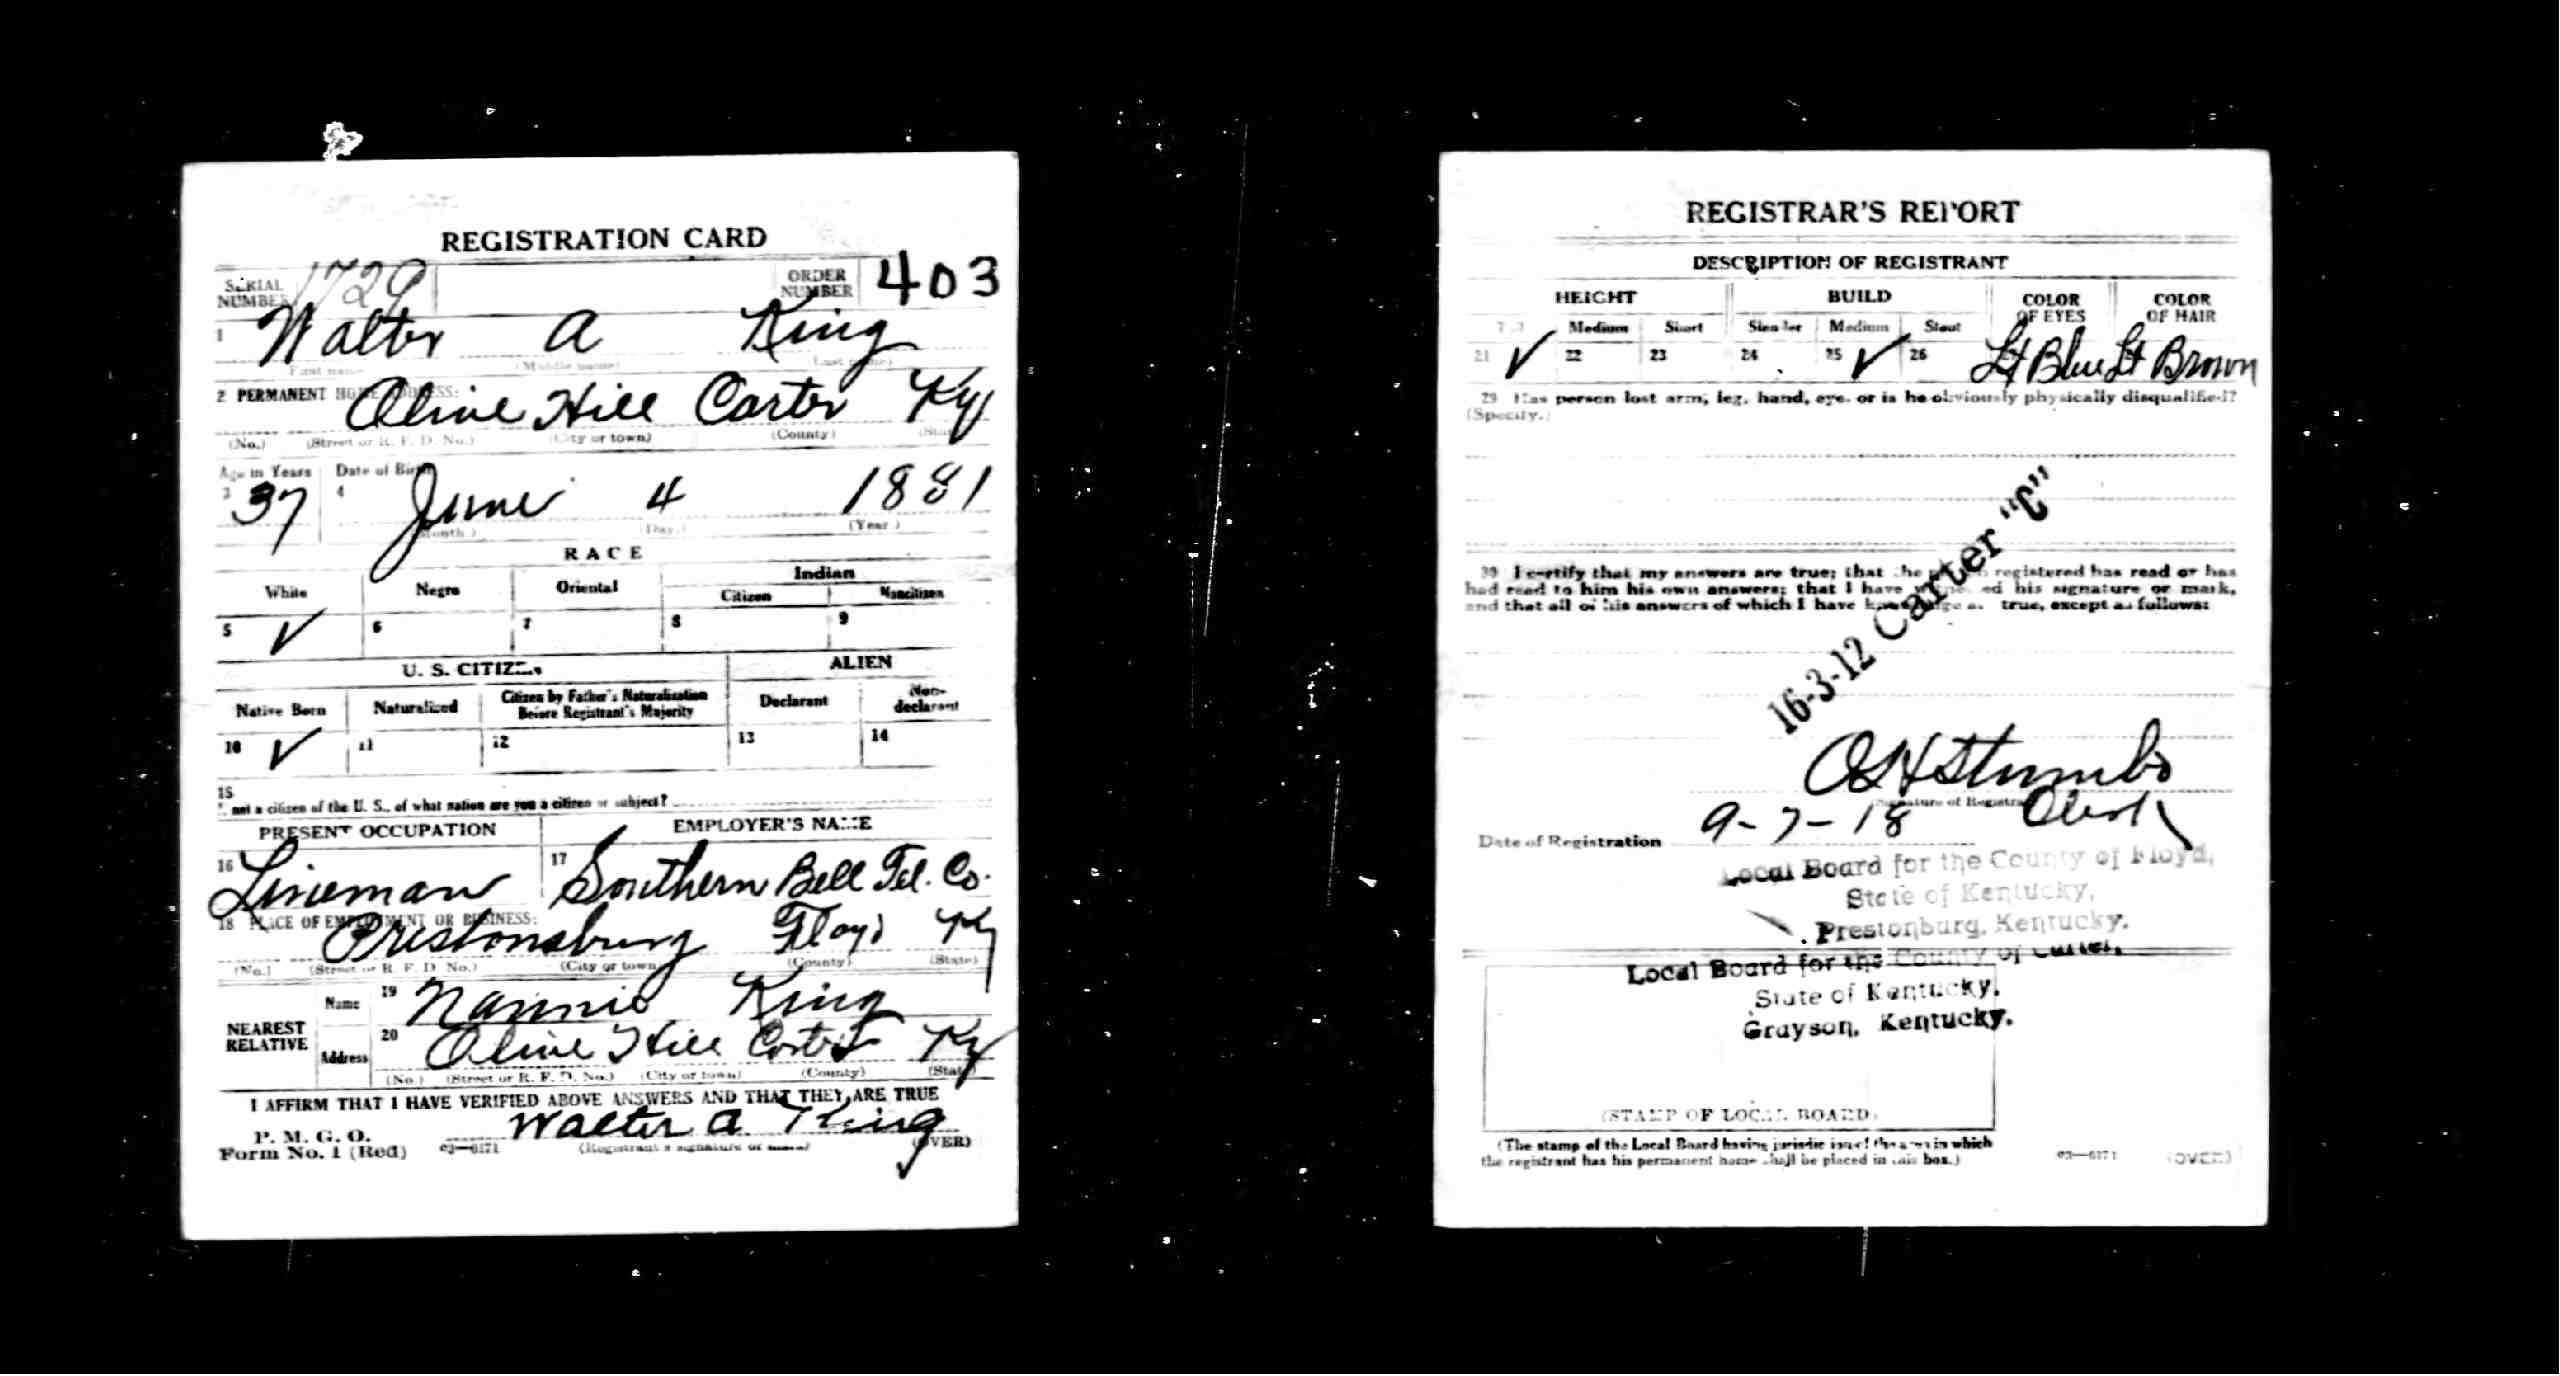 REGISTRATION CARD
SERIAL NUMBER 1729 ORDER NUMBER 403
1 Walter A King
First name (Middle name) (Last name)
2 PERMANENT HOME ADDRESS:
Olive Hill Carter Ky
(No.) (Street or R. F. D. No.) (City or town) (County) (State)
Age in Years Date of Birth
3 37 4 June 4 1881
(Month.) (Day.) (Year.)
RACE
White Negro Oriental Indian
Citizen Noncitizen
5 ✓ 6 7 8 9
U. S. CITIZEN ALIEN
Native Born Naturalized Citizen by Father's Naturalization Before Registrant's Majority Declarant Non-declarant
10 ✓ 11 12 13 14
15
If not a citizen of the U. S., of what nation are you a citizen or subject?
PRESENT OCCUPATION EMPLOYER'S NAME
16 Lineman 17 Southern Bell Tel. Co.
18 PLACE OF EMPLOYMENT OR BUSINESS:
Prestonsburg Floyd Ky
(No.) (Street or R. F. D. No.) (City or town) (County) (State)
NEAREST RELATIVE
Name 19 Nannie King
Address 20 Olive Hill Carter Ky
(No.) (Street or R. F. D. No.) (City or town) (County) (State)
I AFFIRM THAT I HAVE VERIFIED ABOVE ANSWERS AND THAT THEY ARE TRUE
P. M. G. O.
Form No. 1 (Red) 03—6171 Walter A King
(Registrant's signature or mark) (OVER)
REGISTRAR'S REPORT
DESCRIPTION OF REGISTRANT
HEIGHT BUILD COLOR OF EYES COLOR OF HAIR
Medium Short Slender Medium Stout
21 ✓ 22 23 24 25 ✓ 26 Lt Blue Lt Brown
29 Has person lost arm, leg, hand, eye, or is he obviously physically disqualified?
(Specify.)
30 I certify that my answers are true; that the registered has read or has
had read to him his own answers; that I have his signature or mark,
and that all of his answers of which I have knowledge are true, except as follows:
16-3-12 Carter "C"
O H Stumbo
Signature of Registrar
Clerk
Date of Registration 9-7-18
Local Board for the County of Floyd,
State of Kentucky,
Prestonburg, Kentucky.
Local Board for the County of Carter,
State of Kentucky,
Grayson, Kentucky.
(STAMP OF LOCAL BOARD)
(The stamp of the Local Board having jurisdiction of the area in which
the registrant has his permanent home shall be placed in this box.)
03—6171 (OVER)